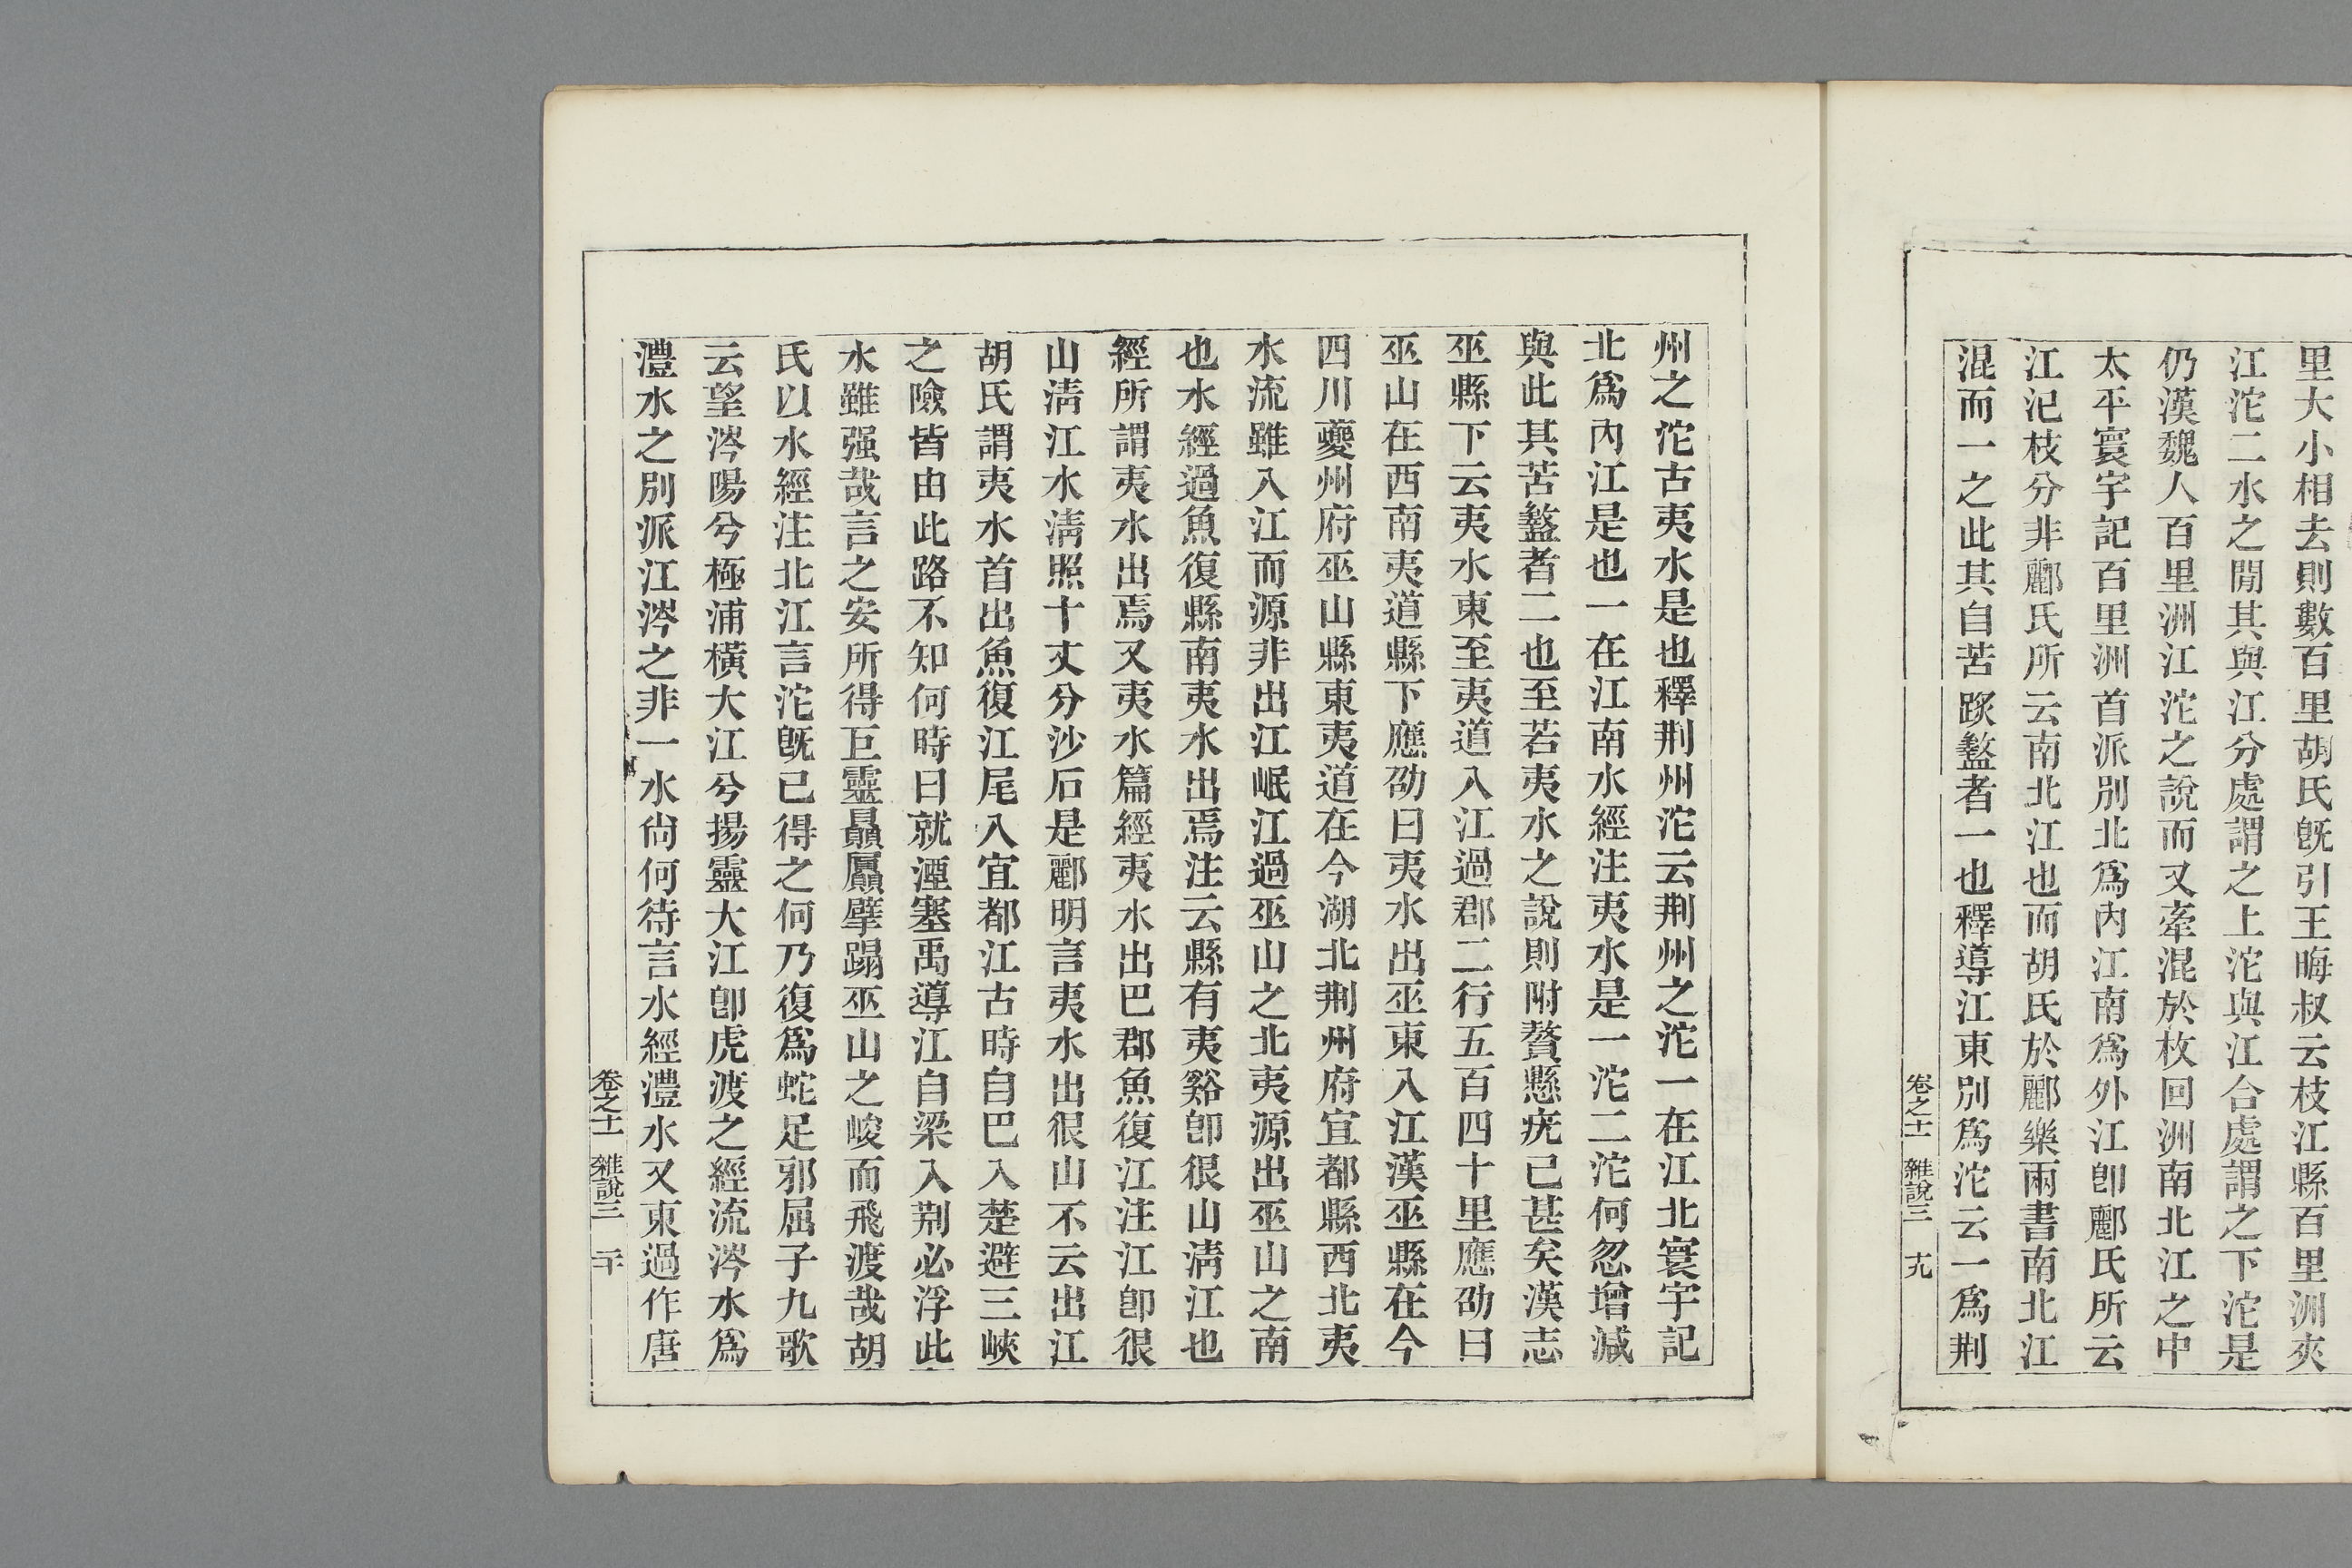 里大小相去則數百里胡氏旣引王晦叔云枝江縣百里洲夾
江沱二水之閒其與江分處謂之上沱與江合處謂之下沱是
仍漢魏人百里洲江沱之說而又牽混於枚回洲南北江之中
太平寰宇記百里洲首派別北爲內江南爲外江卽酈氏所云
江汜枝分非酈氏所云南北江也而胡氏於酈樂兩書南北江
混而一之此其自苦踥盭者一也釋導江東別爲沱云一爲荆
卷之十一 雜說三 十九
州之沱古夷水是也釋荆州沱云荆州之沱一在江北寰宇記
北爲內江是也一在江南水經注夷水是一沱二沱何忽增減
與此其苦盭者二也至若夷水之說則附贅懸疣已甚矣漢志
巫縣下云夷水東至夷道入江過郡二行五百四十里應劭曰
巫山在西南夷道縣下應劭曰夷水出巫東入江漢巫縣在今
四川夔州府巫山縣東夷道在今湖北荆州府宜都縣西北夷
水流雖入江而源非出江岷江過巫山之北夷源出巫山之南
也水經過魚復縣南夷水出焉注云縣有夷谿卽很山淸江也
經所謂夷水出焉又夷水篇經夷水出巴郡魚復江注江卽很
山淸江水淸照十丈分沙石是酈明言夷水出很山不云出江
胡氏謂夷水首出魚復江尾入宜都江古時自巴入楚避三峽
之險皆由此路不知何時曰就湮塞禹導江自梁入荆必浮此
水雖强哉言之安所得巨靈贔屭擘蹋巫山之峻而飛渡哉胡
氏以水經注北江言沱旣已得之何乃復爲蛇足邪屈子九歌
云望涔陽兮極浦橫大江兮揚靈大江卽虎渡之經流涔水爲
澧水之別派江涔之非一水尙何待言水經澧水又東過作唐
卷之十一 雜說三 二十